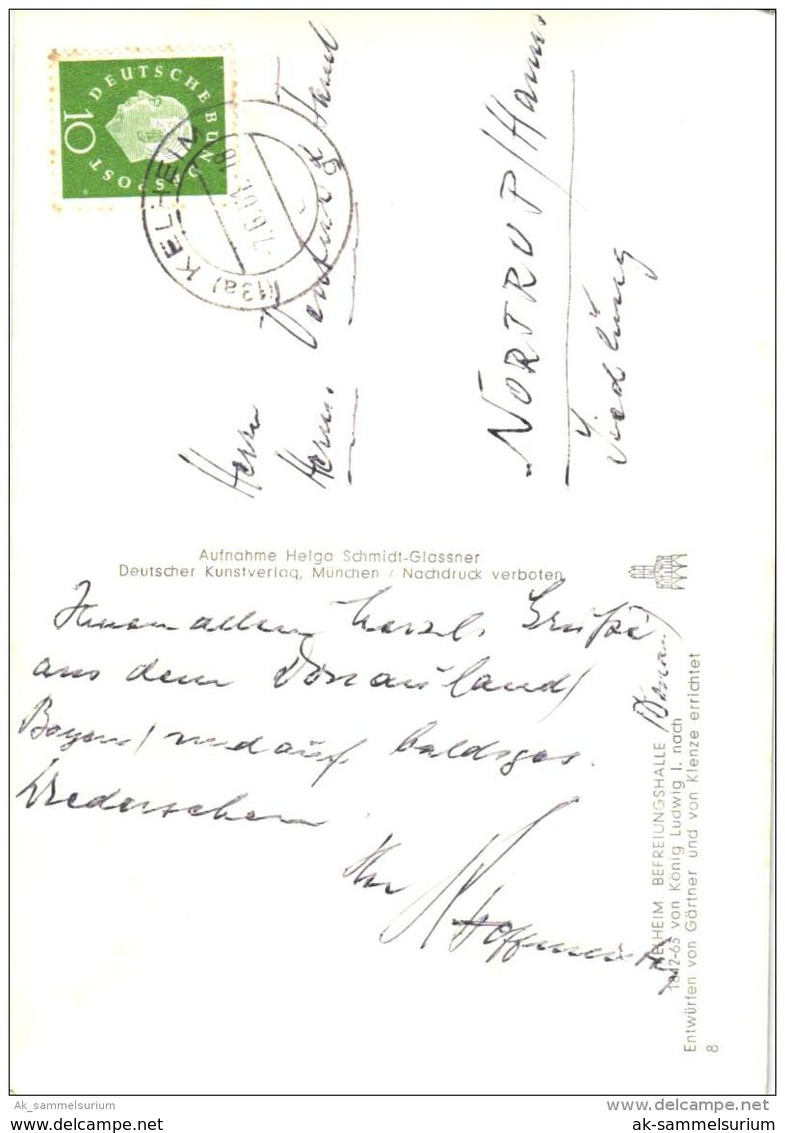 DEUTSCHE BUNDESPOST
10
(13a) KELHEIM
Herrn
Herm.
NORTRUP/Hann
Siedlung
Aufnahme Helga Schmidt-Glassner
Deutscher Kunstverlag, München / Nachdruck verboten
Ihnen allen herzl. Grüße
aus dem Donauland
Bayern und auf baldiges
Wiedersehen
Ihr Hoffmeister
KELHEIM BEFREIUNGSHALLE /Donau
1842-63 von König Ludwig I. nach
Entwürfen von Gärtner und von Klenze errichtet
8
Ak_sammelsurium
PICTURES NOT INCLUDED delcampe.net
ak-sammelsurium